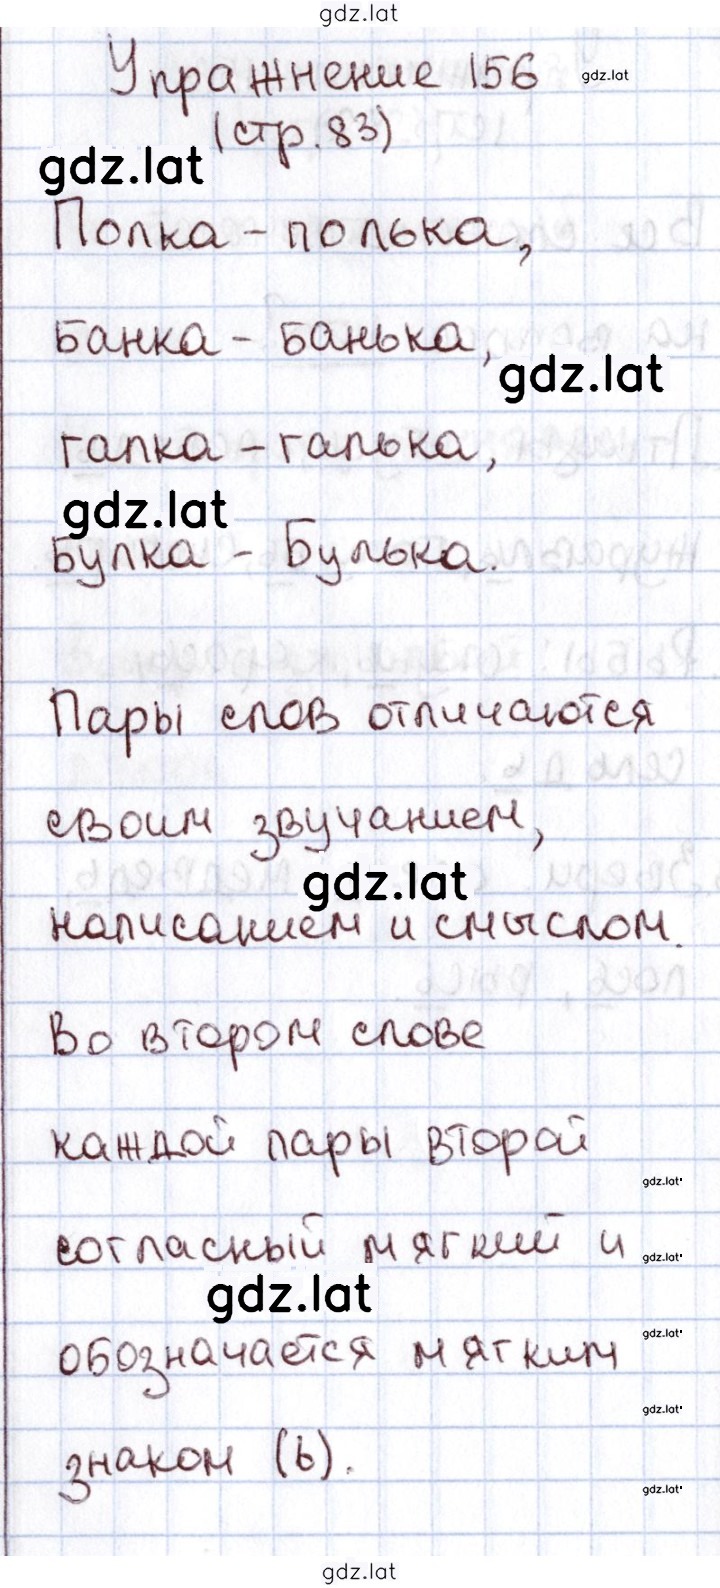 gdz.lat
Упражнение 156
gdz.lat
(стр. 83)
gdz.lat
Полка - полька,
банка - банька,
gdz.lat
галка - галька,
gdz.lat
булка - Булька.
Пары слов отличаются
своим звучанием,
gdz.lat
написанием и смыслом.
Во втором слове
каждой пары второй
gdz.lat
согласный мягкий и
gdz.lat
gdz.lat
обозначается мягким
gdz.lat
gdz.lat
знаком (ь).
gdz.lat
gdz.lat